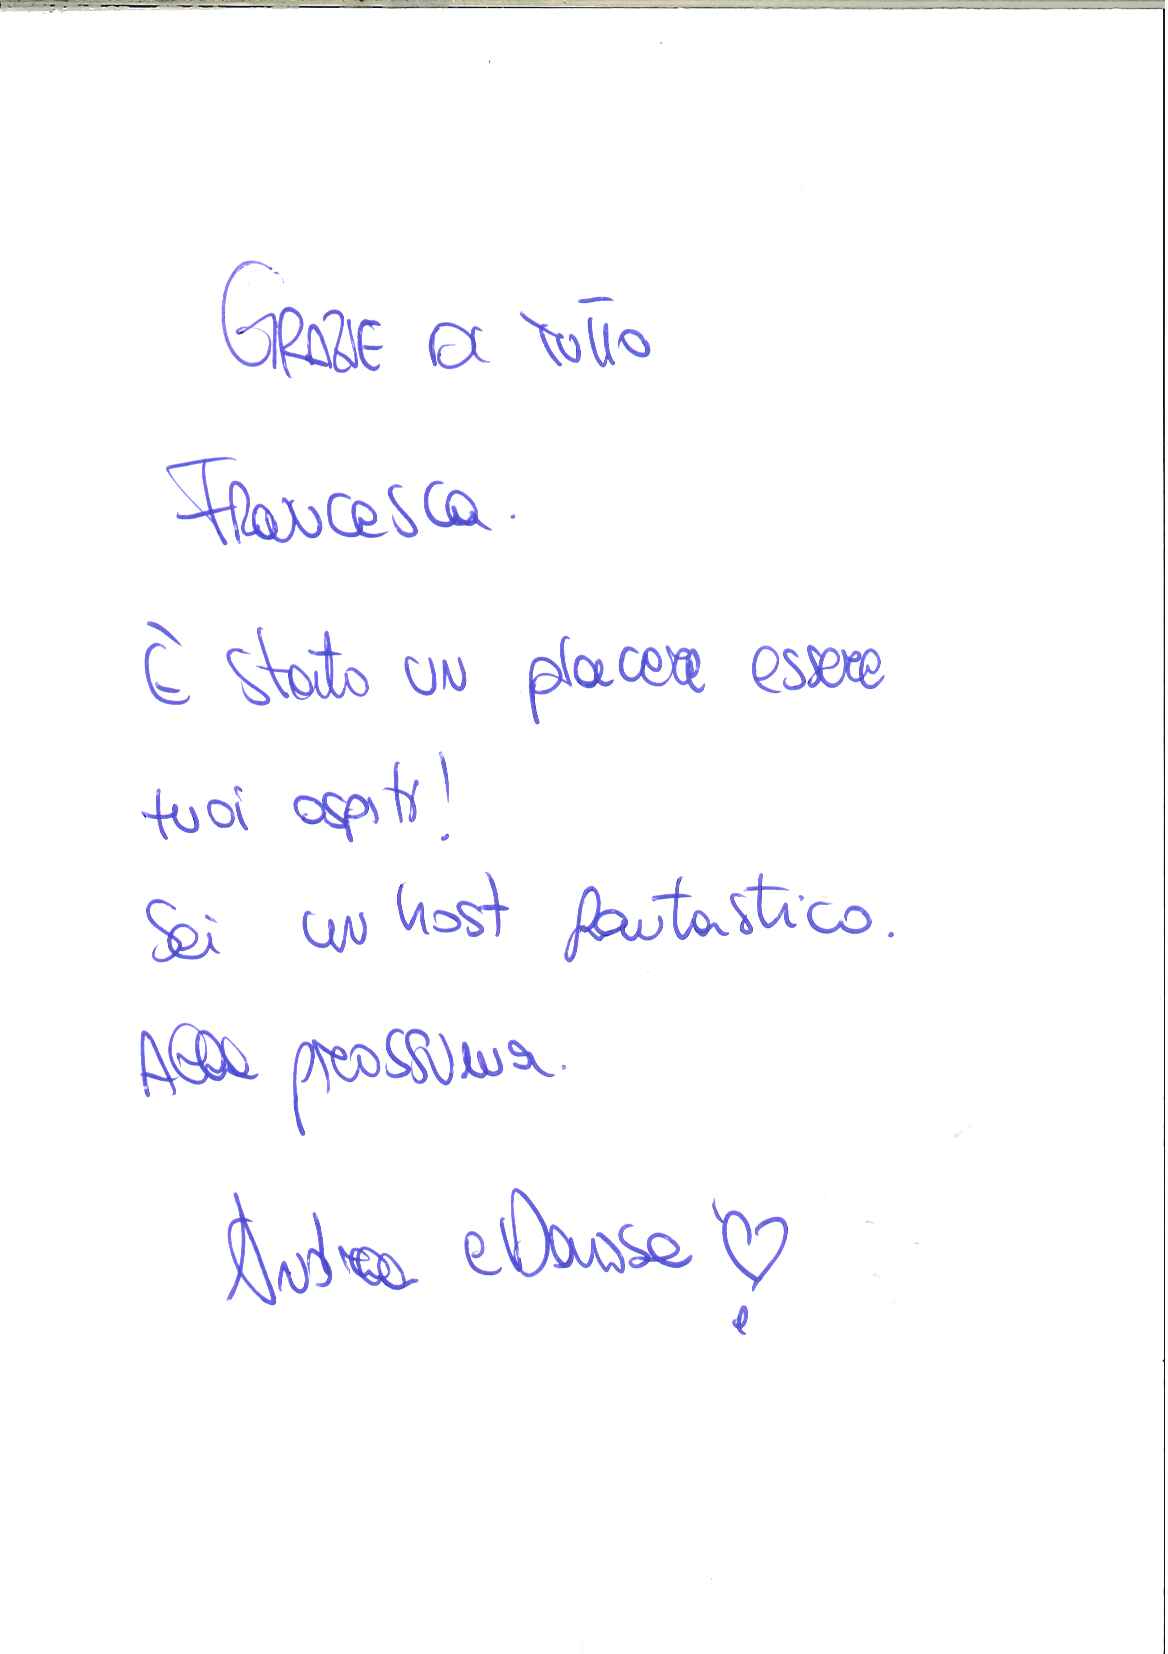 GRAZIE di tutto
Francesca.
È stato un placere essere
tuoi ospiti!
Sei un host fantastico.
Alla prossima.
Andrea e